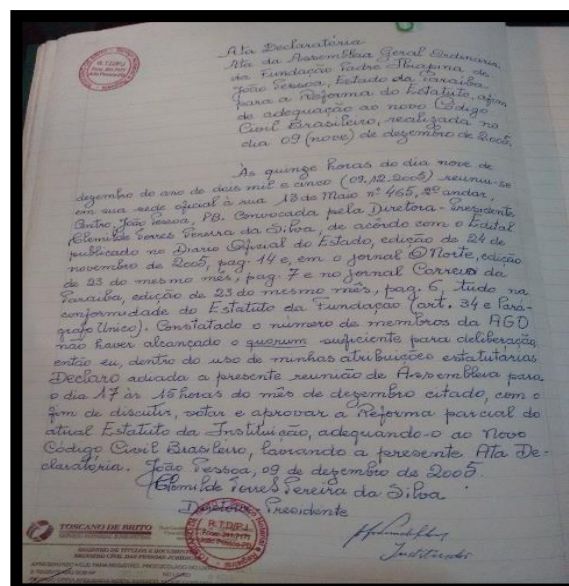 Ata Declaratória
Ata da Assembleia Geral Ordinária
da Fundação Padre Ibiapina de
João Pessoa, Estado da Paraíba
para a Reforma do Estatuto, afim
de adequação ao novo Código
Civil Brasileiro, realizada no
dia 09 (nove) de dezembro de 2005.
Às quinze horas do dia nove de
dezembro do ano de dois mil e cinco (09.12.2005) reuniu-se
em sua sede oficial à rua 13 de Maio nº 465, 2º andar,
Centro, João Pessoa, PB. Convocada pela Diretora-Presidente
Clemilde Torres Pereira da Silva, de acordo com o Edital
publicado no Diário Oficial do Estado, edição de 24 de
novembro de 2005, pag. 14 e, em o jornal O Norte, edição
de 23 do mesmo mês, pag. 7 e no jornal Correio da
Paraíba, edição de 23 do mesmo mês, pag. 6, tudo na
conformidade do Estatuto da Fundação (art. 34 e Pará-
grafo Único). Constatado o número de membros da AGO
não haver alcançado o quorum suficiente para deliberação,
então eu, dentro do uso de minhas atribuições estatutárias
Declaro adiada a presente reunião de Assembleia para
o dia 17 às 15 horas do mês de dezembro citado, com o
fim de discutir, votar e aprovar a Reforma parcial do
atual Estatuto da Instituição, adequando-o ao Novo
Código Civil Brasileiro, lavrando a presente Ata De-
claratória. João Pessoa, 09 de dezembro de 2005.
Clemilde Torres Pereira da Silva
Diretora Presidente
R.T.D/P.J
TOSCANO DE BRITO
REGISTRO DE TÍTULOS E DOCUMENTOS
REGISTRO CIVIL DAS PESSOAS JURÍDICAS